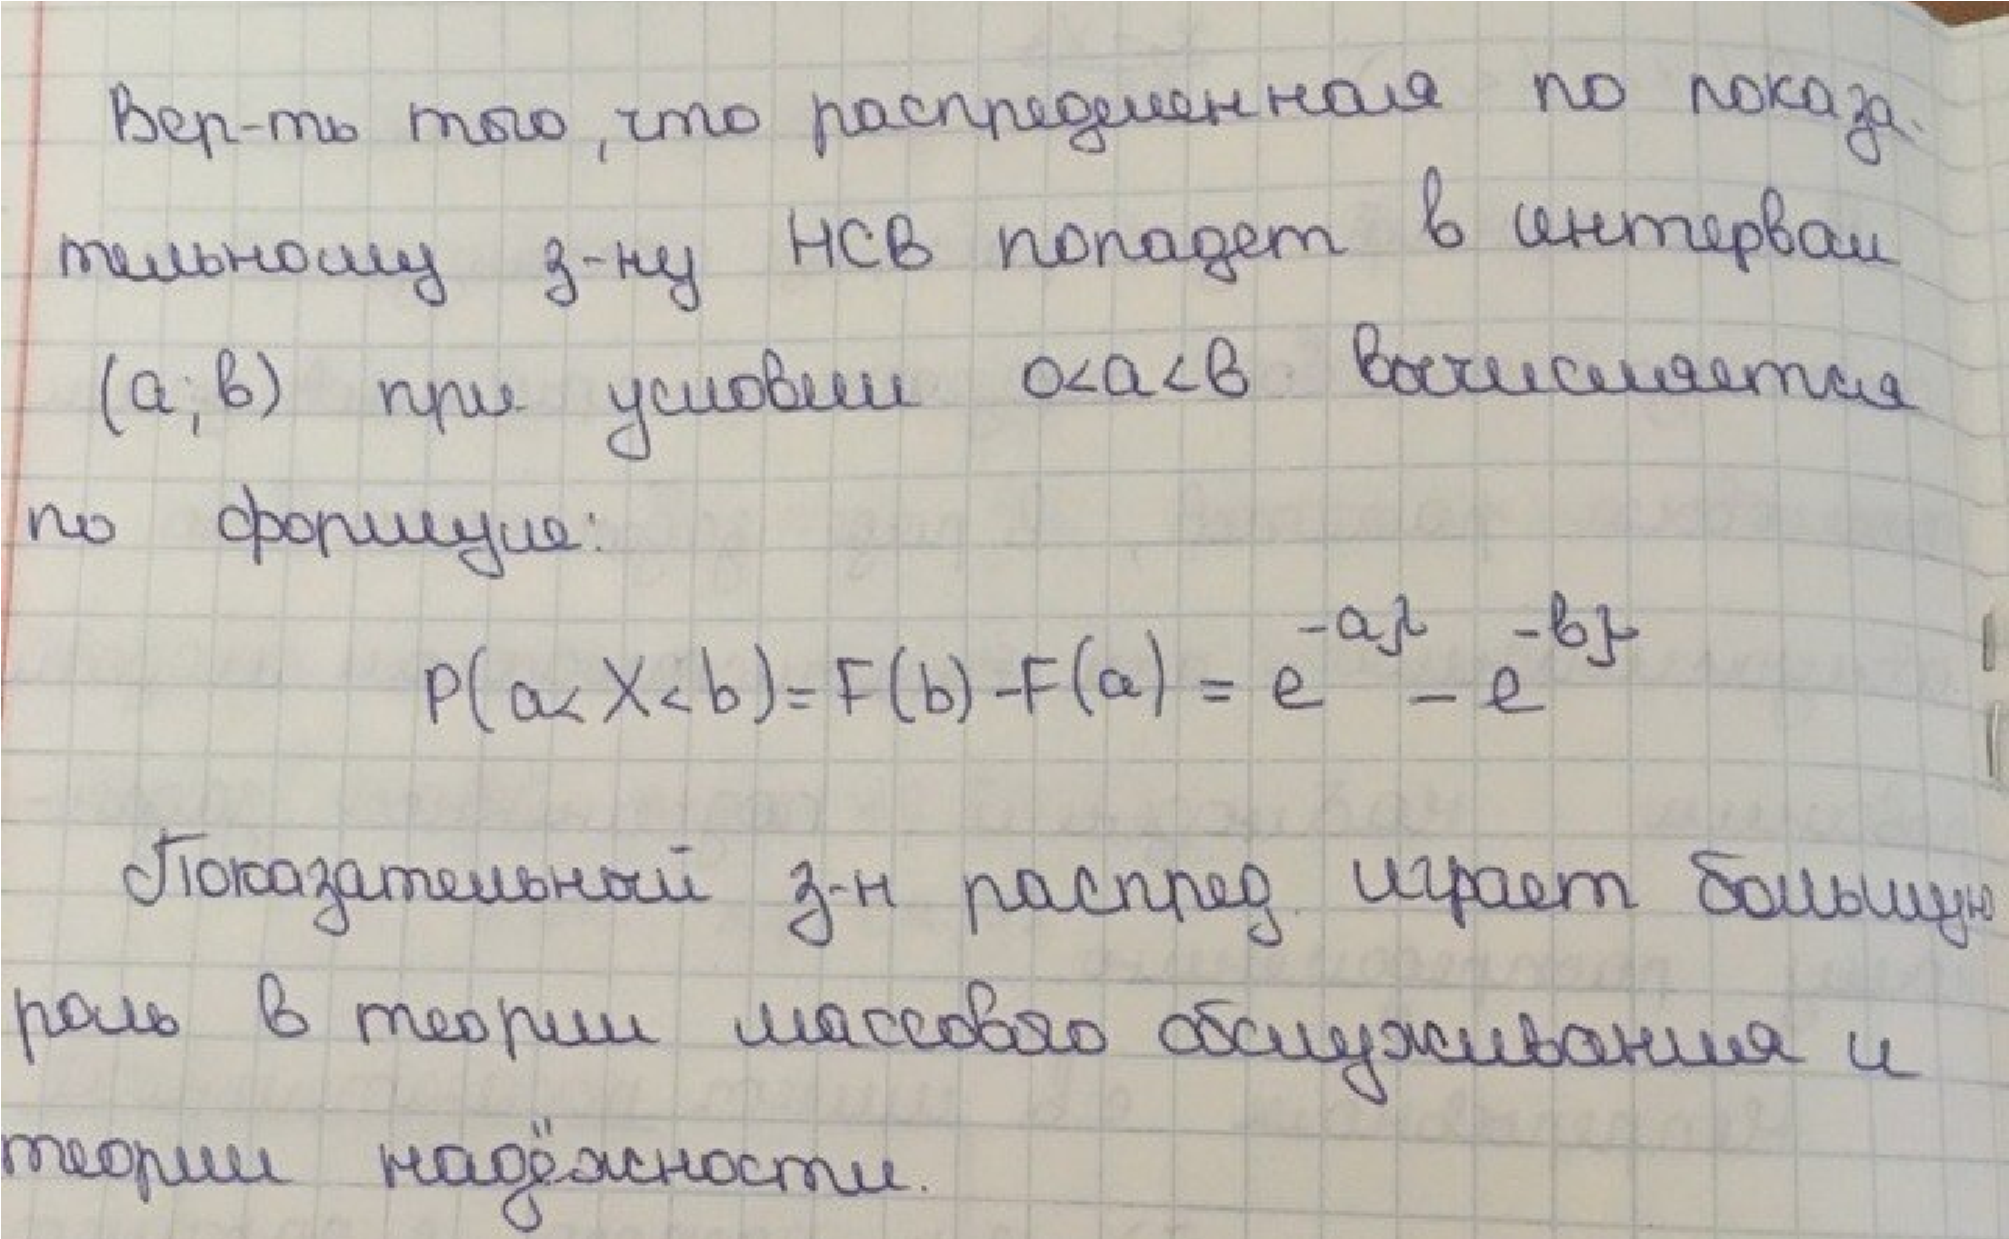 Вер-ть того, что распределенная по показа-
тельному з-ну НСВ попадет в интервал
(а; в) при условии 0<а<в вычисляется
по формуле:
P(a<X<b)=F(b)-F(a) = e^{-aλ} - e^{-bλ}
Показательный з-н распред. играет большую
роль в теории массового обслуживания и
теории надёжности.